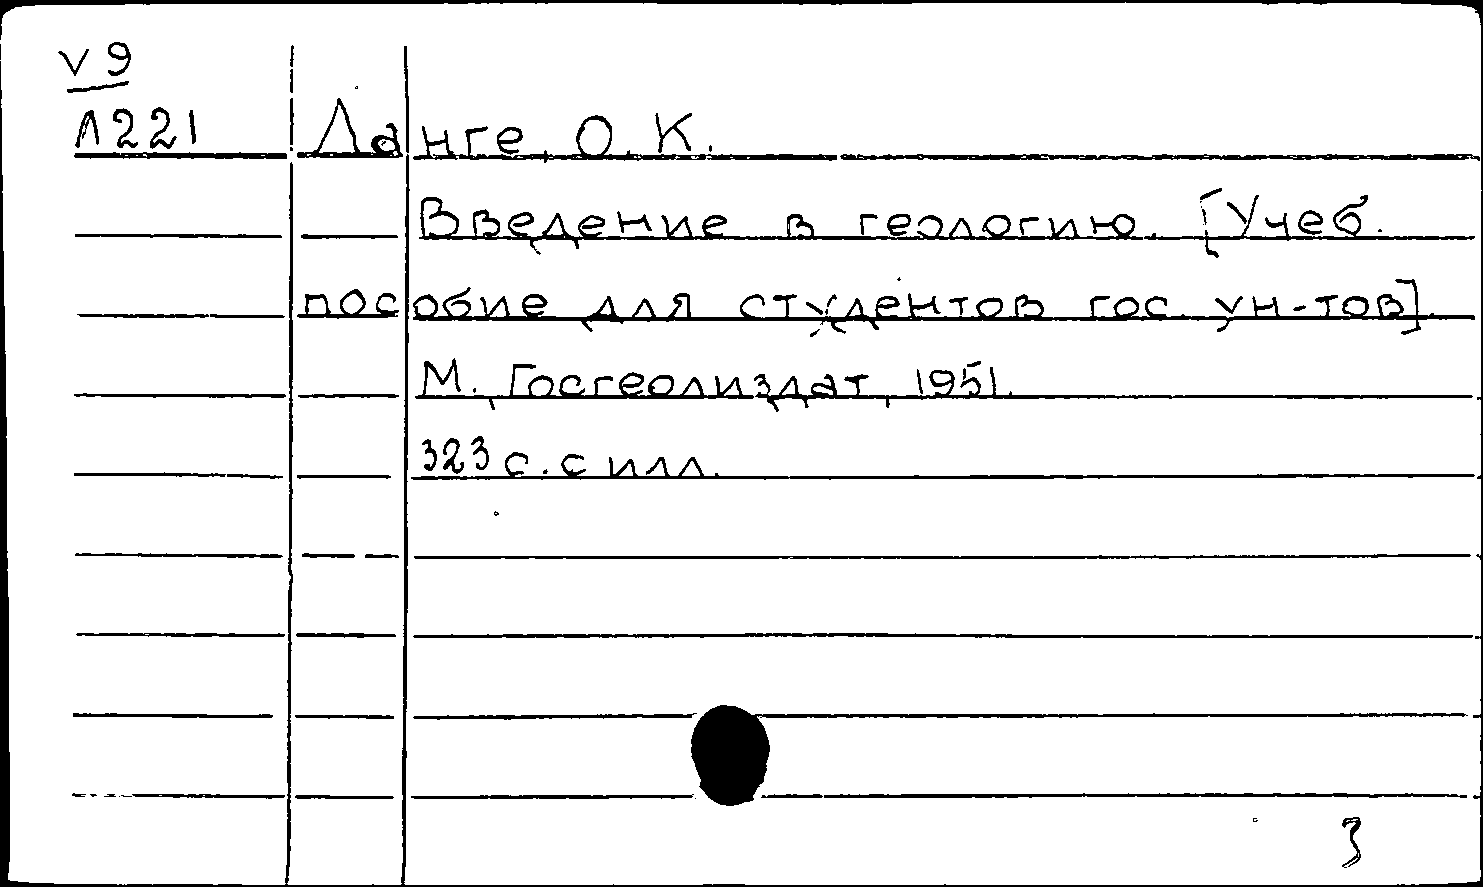 V 9
Л221 Ланге, О. К.
Введение в геологию. [Учеб.
пособие для студентов гос. ун-тов].
М., Госгеолиздат, 1951.
323 с. с илл.
3